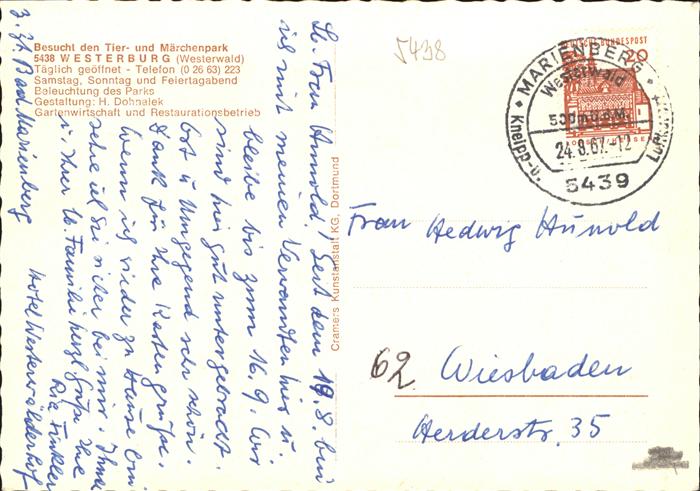 Besucht den Tier- und Märchenpark
5438 WESTERBURG (Westerwald)
Täglich geöffnet - Telefon (0 26 63) 223
Samstag, Sonntag und Feiertagabend
Beleuchtung des Parks
Gestaltung: H. Dohnalek
Gartenwirtschaft und Restaurationsbetrieb
5438
DEUTSCHE BUNDESPOST
20
MARIENBERG
Westerwald
500m ü.M.
24.8.67.-12
Kneipp-u.
5439
Cramers Kunstanstalt KG, Dortmund
z. Zt. Bad Marienberg
Hotel Westerwälderhof
Lb. Frau Hunold! Seit dem 19.8. bin
ich mit meinen Verwandten hier u.
bleibe bis zum 16.9. Wir
sind hier gut untergebracht.
Ort u Umgegend sehr schön.
Dank für Ihre Kartengrüße.
Wenn ich wieder zu Hause bin
sehe ich Sie sicher bei mir. Ihnen
u. Ihrer lb. Familie herzl Grüße Ihre
Frau Hedwig Hunold
62 Wiesbaden
Herderstr. 35